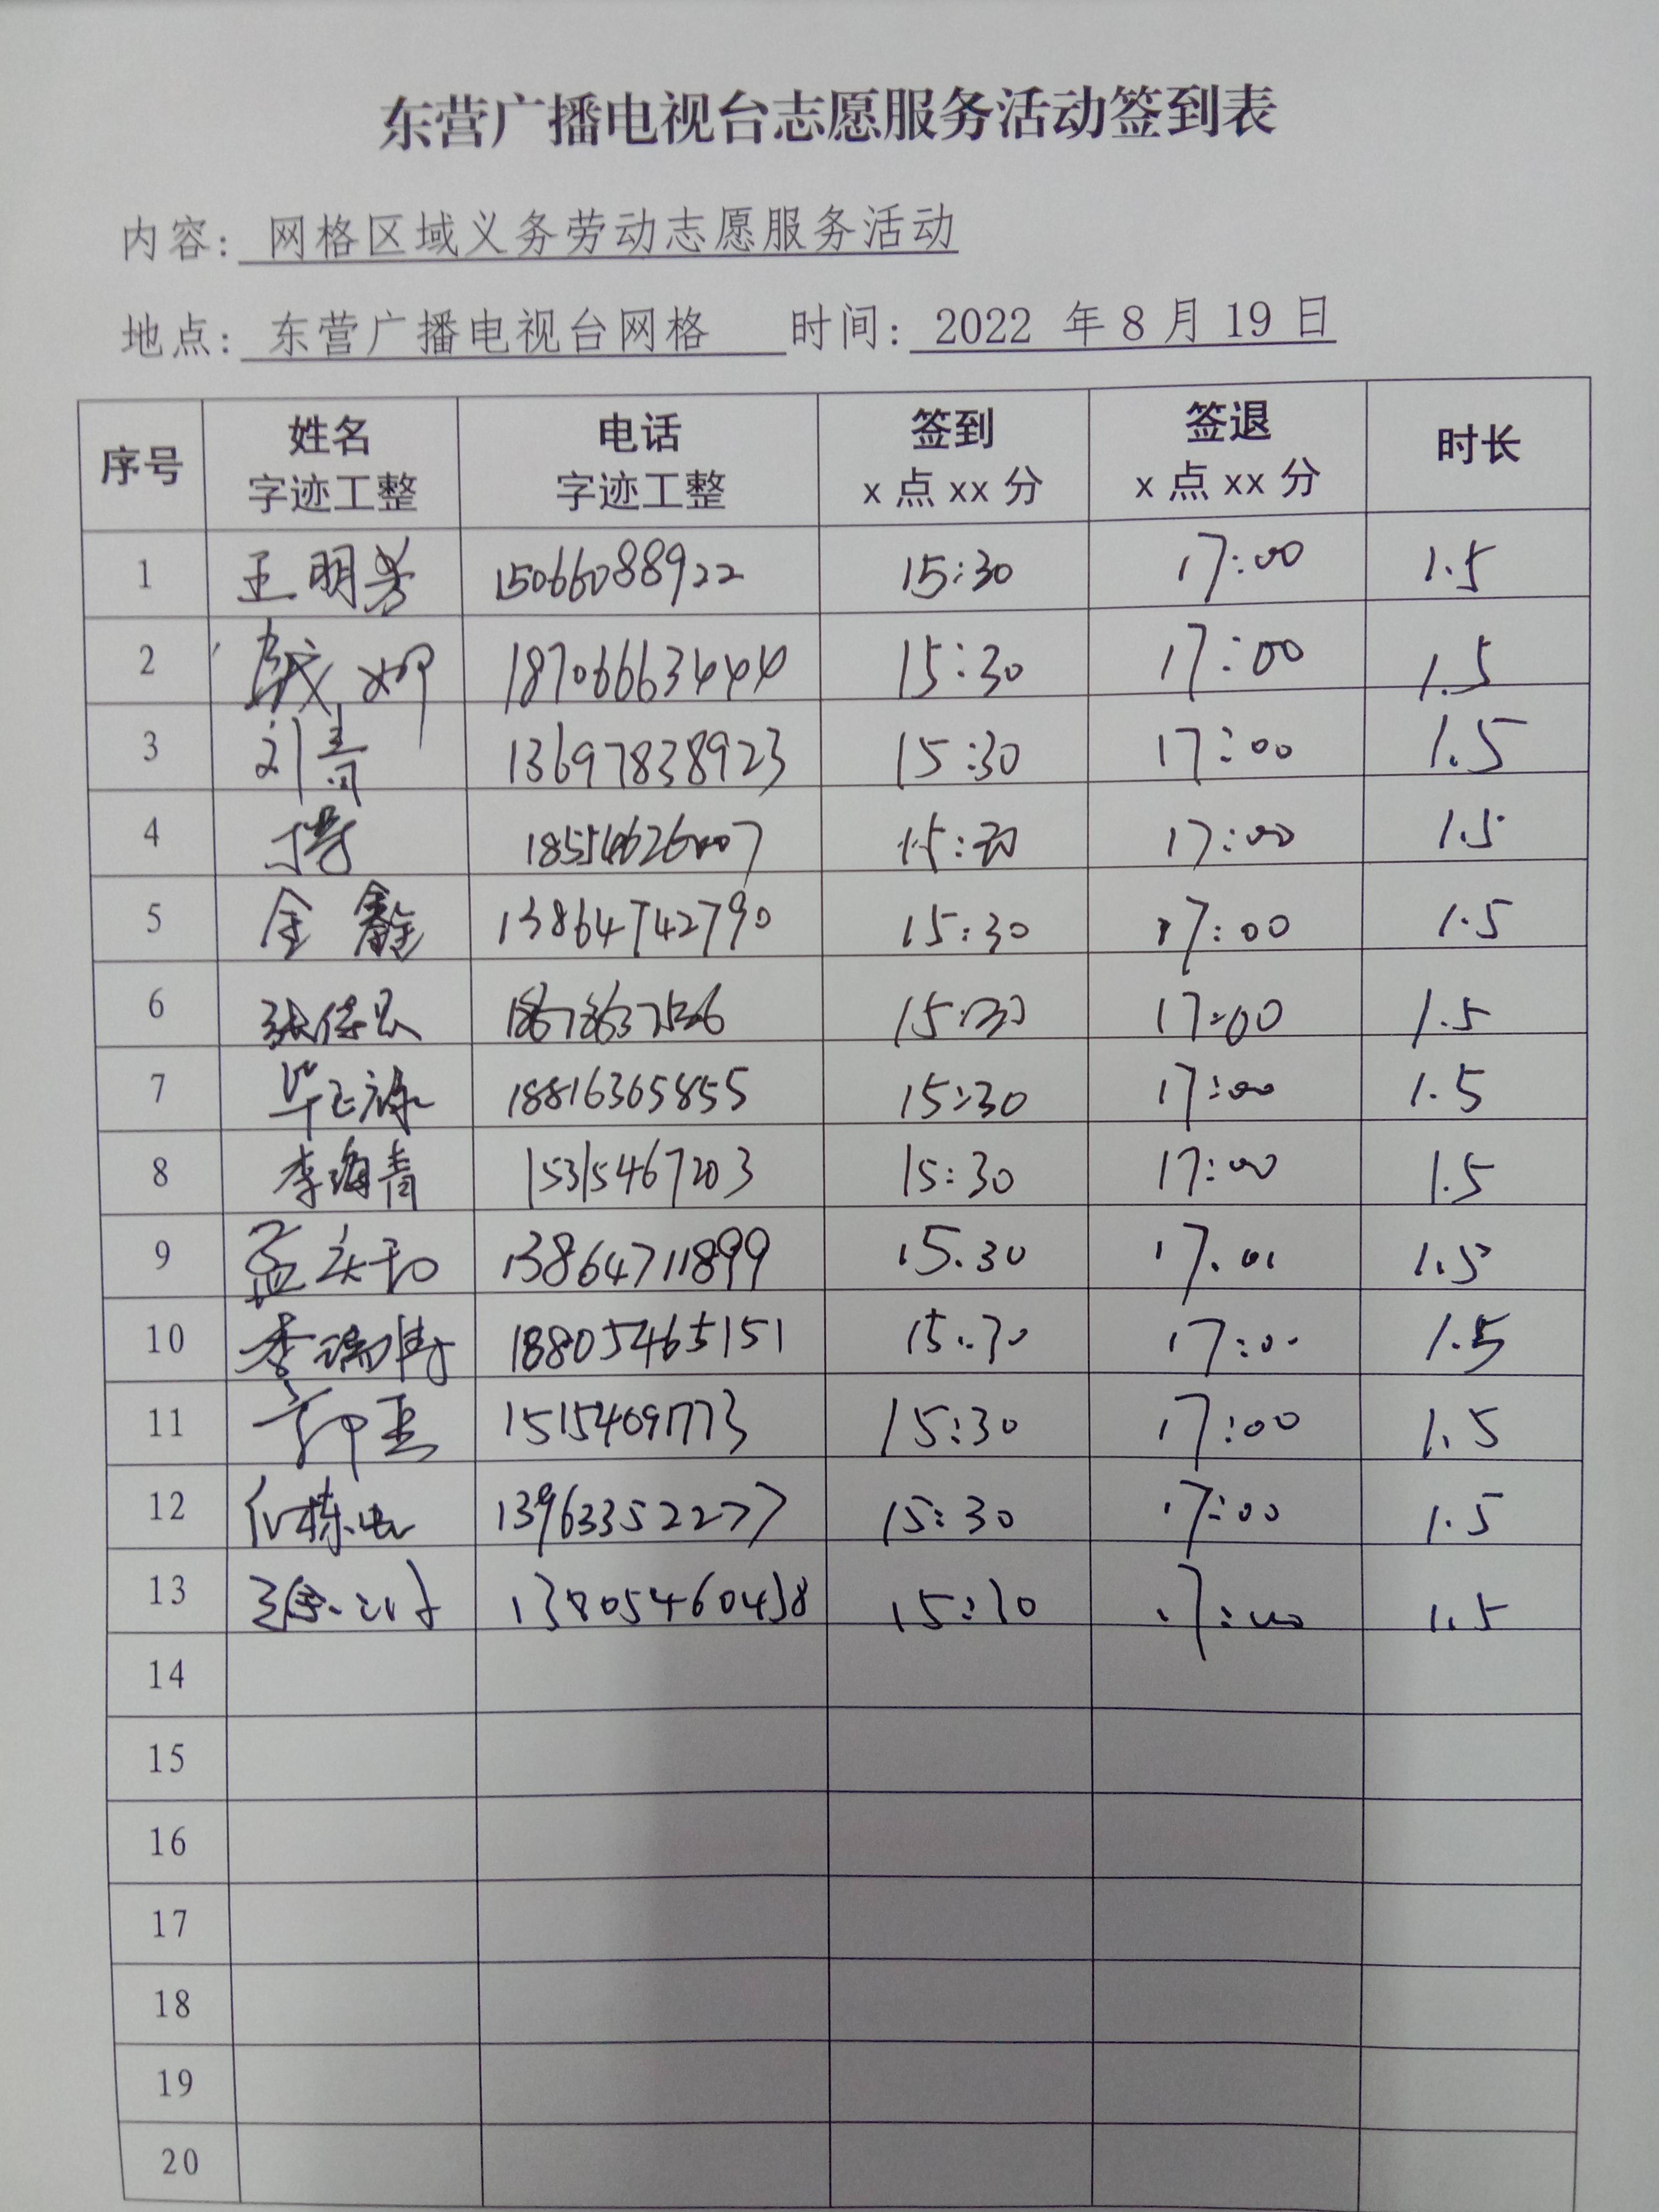 东营广播电视台志愿服务活动签到表
内容: 网格区域义务劳动志愿服务活动
地点: 东营广播电视台网格 时间: 2022 年 8 月 19 日
序号 姓名 字迹工整 电话 字迹工整 签到 x 点 xx 分 签退 x 点 xx 分 时长
1 王明芳 15066088922 15:30 17:00 1.5
2 18706663444 15:30 17:00 1.5
3 刘青 13697838923 15:30 17:00 1.5
4 15:30 17:00 1.5
5 金鑫 13864742790 15:30 17:00 1.5
6 15:30 17:00 1.5
7 18816365855 15:30 17:00 1.5
8 李海青 15315467203 15:30 17:00 1.5
9 13864711899 15.30 17.01 1.5
10 李瑞博 18805465151 15:30 17:00 1.5
11 15154091773 15:30 17:00 1.5
12 13963352277 15:30 17:00 1.5
13 13805460438 15:30 17:00 1.5
14
15
16
17
18
19
20